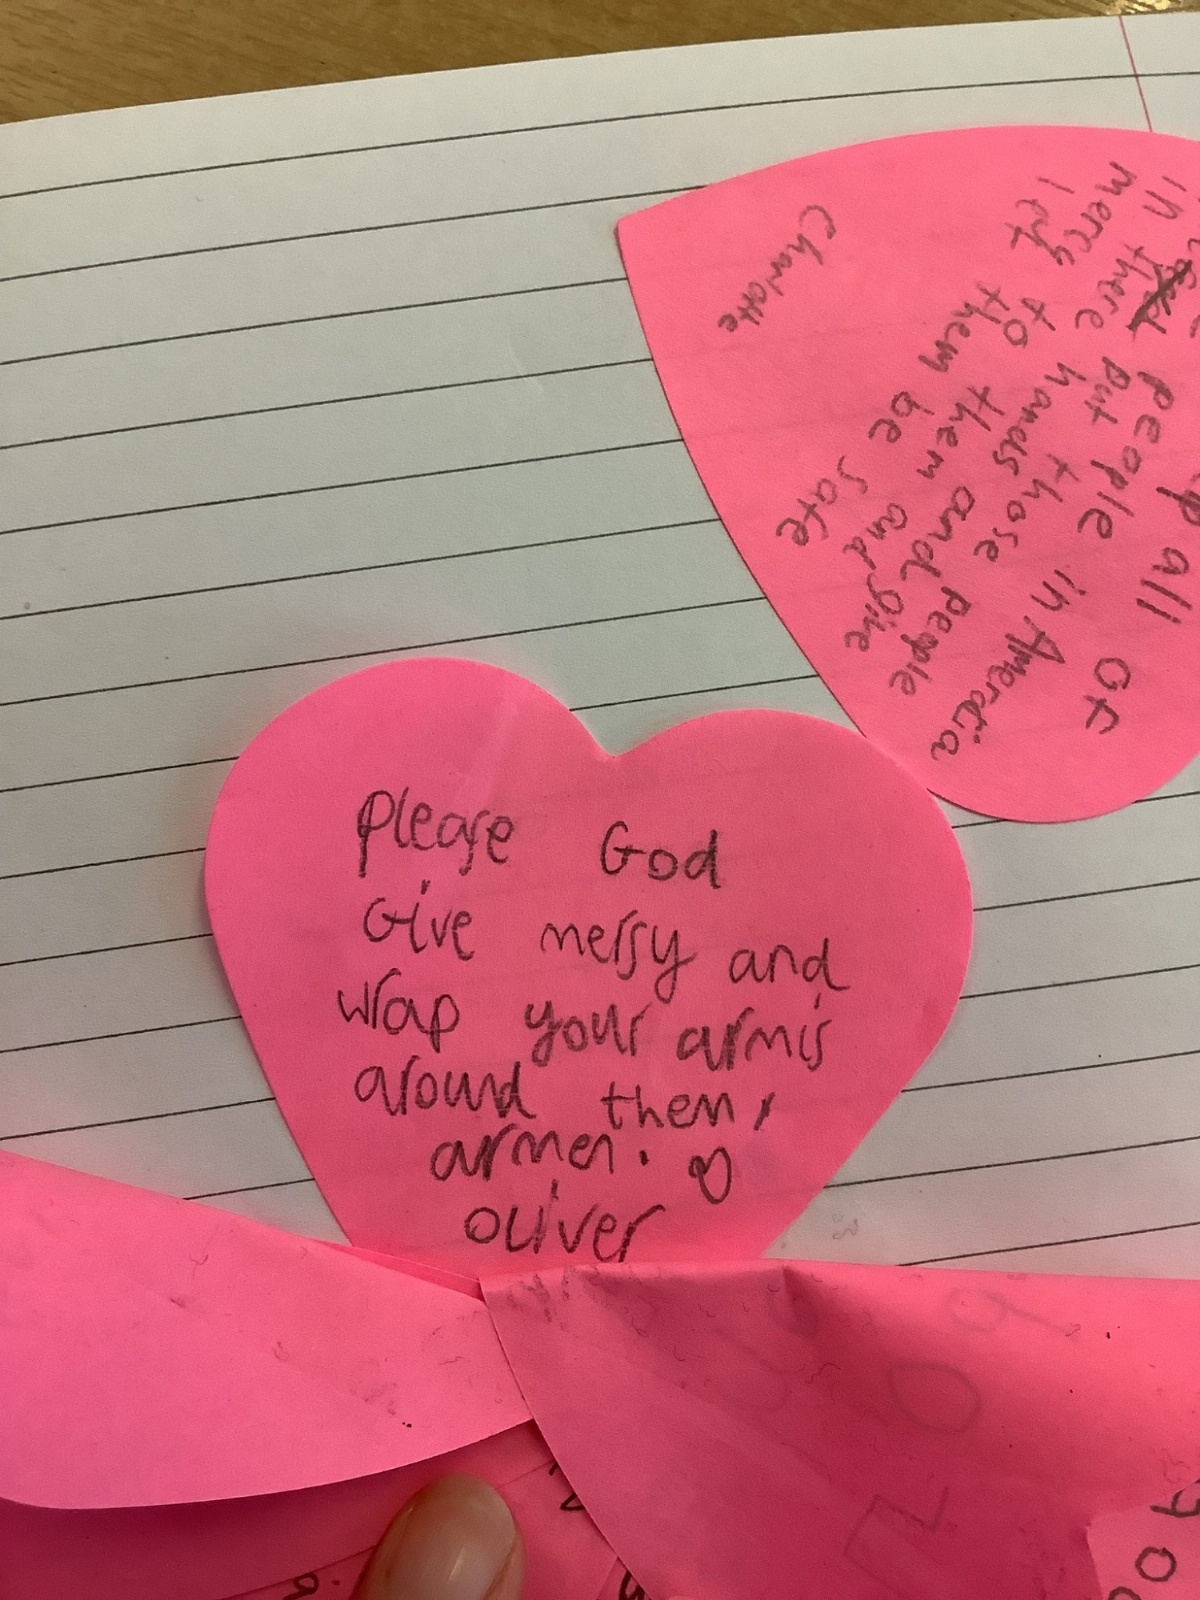 all of
people in Amercia
put those people
in there hands and give
mercy to them and
let them be safe
Charlotte
please God
Give mersy and
wrap your armis
around them,
armen. ♡
oliver